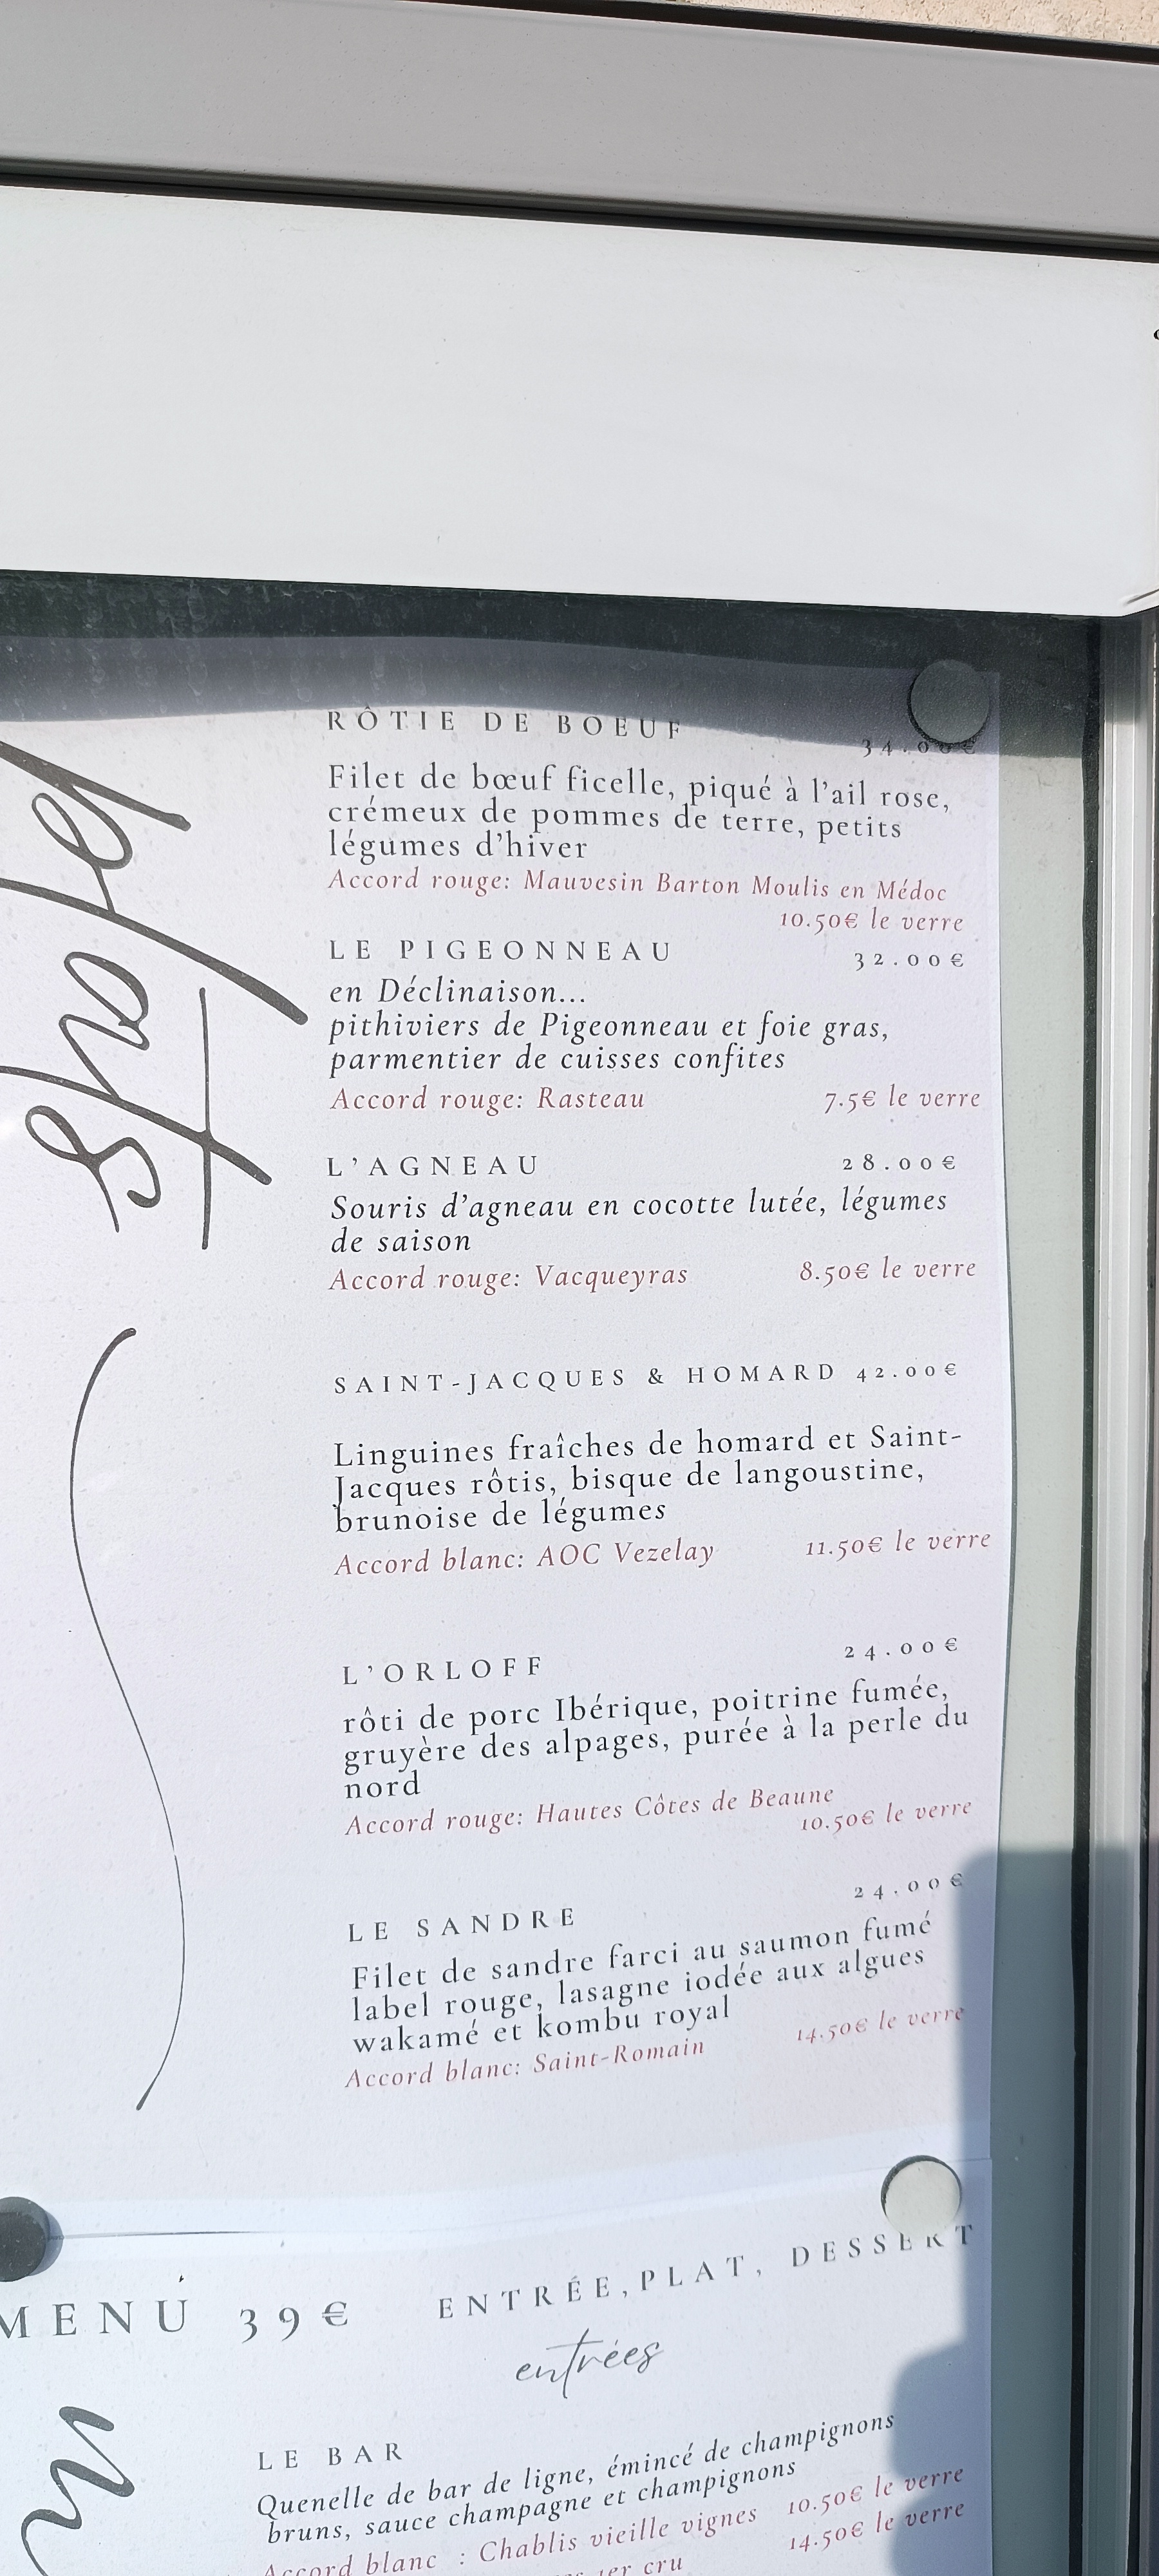 les plats
RÔTIE DE BOEUF
34.00€
Filet de bœuf ficelle, piqué à l'ail rose,
crémeux de pommes de terre, petits
légumes d'hiver
Accord rouge: Mauvesin Barton Moulis en Médoc
10.50€ le verre
LE PIGEONNEAU 32.00€
en Déclinaison...
pithiviers de Pigeonneau et foie gras,
parmentier de cuisses confites
Accord rouge: Rasteau 7.5€ le verre
L'AGNEAU 28.00€
Souris d'agneau en cocotte lutée, légumes
de saison
Accord rouge: Vacqueyras 8.50€ le verre
SAINT-JACQUES & HOMARD 42.00€
Linguines fraîches de homard et Saint-
Jacques rôtis, bisque de langoustine,
brunoise de légumes
Accord blanc: AOC Vezelay 11.50€ le verre
L'ORLOFF 24.00€
rôti de porc Ibérique, poitrine fumée,
gruyère des alpages, purée à la perle du
nord
Accord rouge: Hautes Côtes de Beaune
10.50€ le verre
LE SANDRE 24.00€
Filet de sandre farci au saumon fumé
label rouge, lasagne iodée aux algues
wakamé et kombu royal
Accord blanc: Saint-Romain 14.50€ le verre
MENU 39€ ENTRÉE,PLAT, DESSERT
entrées
LE BAR
Quenelle de bar de ligne, émincé de champignons
bruns, sauce champagne et champignons
Accord blanc : Chablis vieille vignes 10.50€ le verre
1er cru 14.50€ le verre